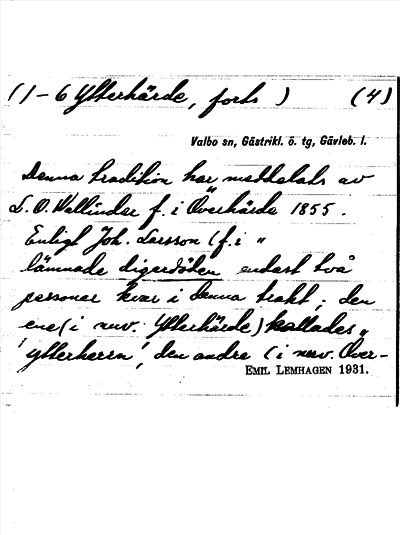 (1-6 Ytterhärde, forts ) (4)
Valbo sn, Gästrikl. ö. tg, Gävleb. l.
Denna tradition har meddelats av
L. O. Wallinder f. i Överhärde 1855.
Enligt Joh. Larsson (f. i "
lämnade digerdöden endast två
personer kvar i denna trakt; den
ene (i nuv. Ytterhärde) kallades "
ytterherrn', den andre (i nuv. Över-
EMIL LEMHAGEN 1931.